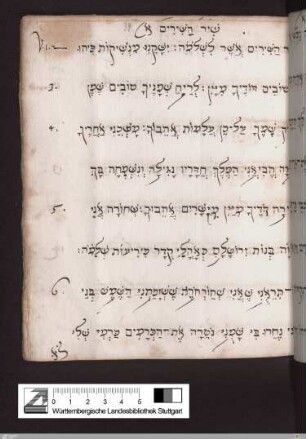 שיר השירים א
V. 2. השירים אשר לשלמה׃ ישקני מנשיקות פיהו
3. טובים דודיך מיין׃ לריח שמניך טובים שמן
4. שמך על־כן עלמות אהבוך׃ משכני אחריך
הביאני המלך חדריו נגילה ונשמחה בך
5. דדיך מיין מישרים אהבוך׃ שחורה אני
בנות ירושלם כאהלי קדר כיריעות שלמה׃
6. תראני שאני שחרחרת ששזפתני השמש בני
נחרו בי שמני נטרה את־הכרמים כרמי שלי
לא
0 1 2 3 4 5
Württembergische Landesbibliothek Stuttgart